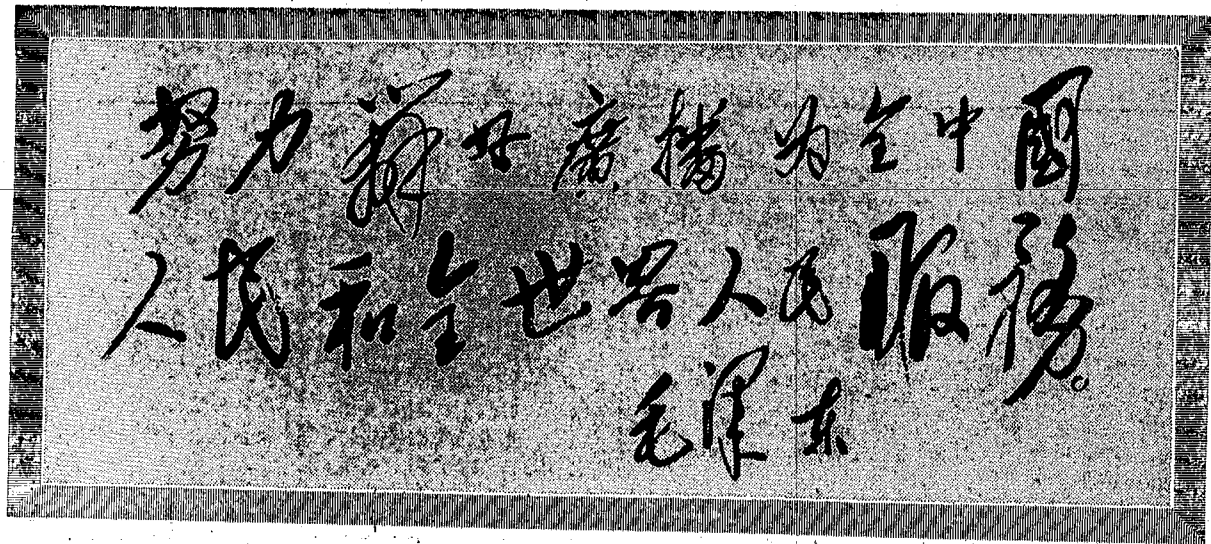 努力辦好廣播为全中國
人民和全世界人民服務。
毛澤东